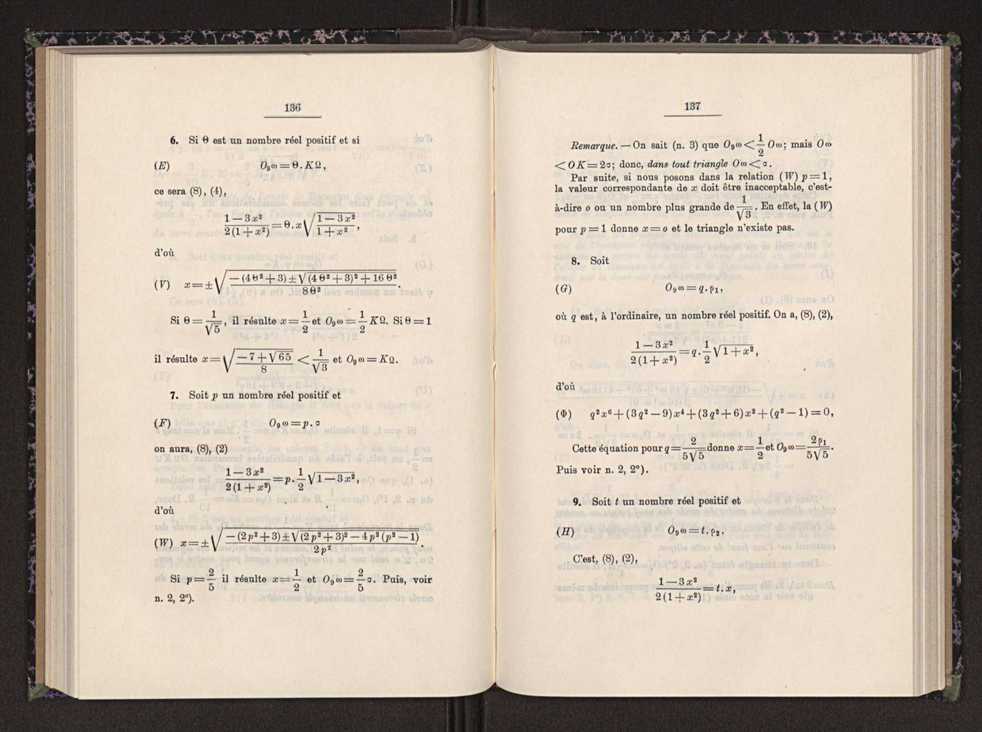 136
6. Si Θ est un nombre réel positif et si
(E) O₉ω = Θ . KΩ,
ce sera (8), (4),
(1 — 3x²)/(2(1 + x²)) = Θ . x √((1 — 3x²)/(1 + x²)),
d'où
(V) x = ± √((— (4Θ² + 3) ± √((4Θ² + 3)² + 16Θ²))/(8Θ²)).
Si Θ = 1/√5, il résulte x = 1/2 et O₉ω = 1/2 KΩ. Si Θ = 1
il résulte x = √((— 7 + √65)/8) < 1/√3 et O₉ω = KΩ.
7. Soit p un nombre réel positif et
(F) O₉ω = p . ɔ
on aura, (8), (2)
(1 — 3x²)/(2(1 + x²)) = p . 1/2 √(1 — 3x²),
d'où
(W) x = ± √((— (2p² + 3) ± √((2p² + 3)² — 4p²(p² — 1)))/(2p²)).
Si p = 2/5 il résulte x = 1/2 et O₉ω = 2/5 ɔ. Puis, voir
n. 2, 2º).
137
Remarque. — On sait (n. 3) que O₉ω < 1/2 Oω; mais Oω
< OK = 2ɔ; donc, dans tout triangle Oω < ɔ.
Par suite, si nous posons dans la relation (W) p = 1,
la valeur correspondante de x doit être inacceptable, c'est-
à-dire o ou un nombre plus grande de 1/√3. En effet, la (W)
pour p = 1 donne x = o et le triangle n'existe pas.
8. Soit
(G) O₉ω = q . ρ₁,
où q est, à l'ordinaire, un nombre réel positif. On a, (8), (2),
(1 — 3x²)/(2(1 + x²)) = q . 1/2 √(1 + x²),
d'où
(Φ) q²x⁶ + (3q² — 9)x⁴ + (3q² + 6)x² + (q² — 1) = 0,
Cette équation pour q = 2/(5√5) donne x = 1/2 et O₉ω = 2ρ₁/(5√5).
Puis voir n. 2, 2º).
9. Soit t un nombre réel positif et
(H) O₉ω = t . ρ₂.
C'est, (8), (2),
(1 — 3x²)/(2(1 + x²)) = t . x,